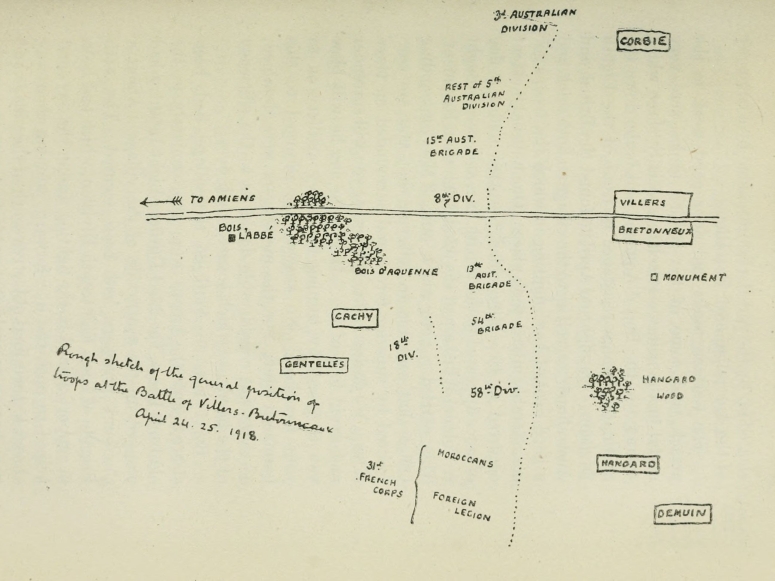 3rd AUSTRALIAN
DIVISION
CORBIE
REST of 5th
AUSTRALIAN
DIVISION
15th AUST.
BRIGADE
TO AMIENS
8th DIV.
VILLERS
BRETONNEUX
BOIS
L'ABBÉ
BOIS D'AQUENNE
13th
AUST.
BRIGADE
MONUMENT
CACHY
54th
BRIGADE
18th
DIV.
GENTELLES
58th Div.
HANGARD
WOOD
Rough sketch of the general position of
troops at the Battle of Villers-Bretonneaux
April 24. 25. 1918.
31st
FRENCH
CORPS
MOROCCANS
FOREIGN
LEGION
HANGARD
DEMUIN